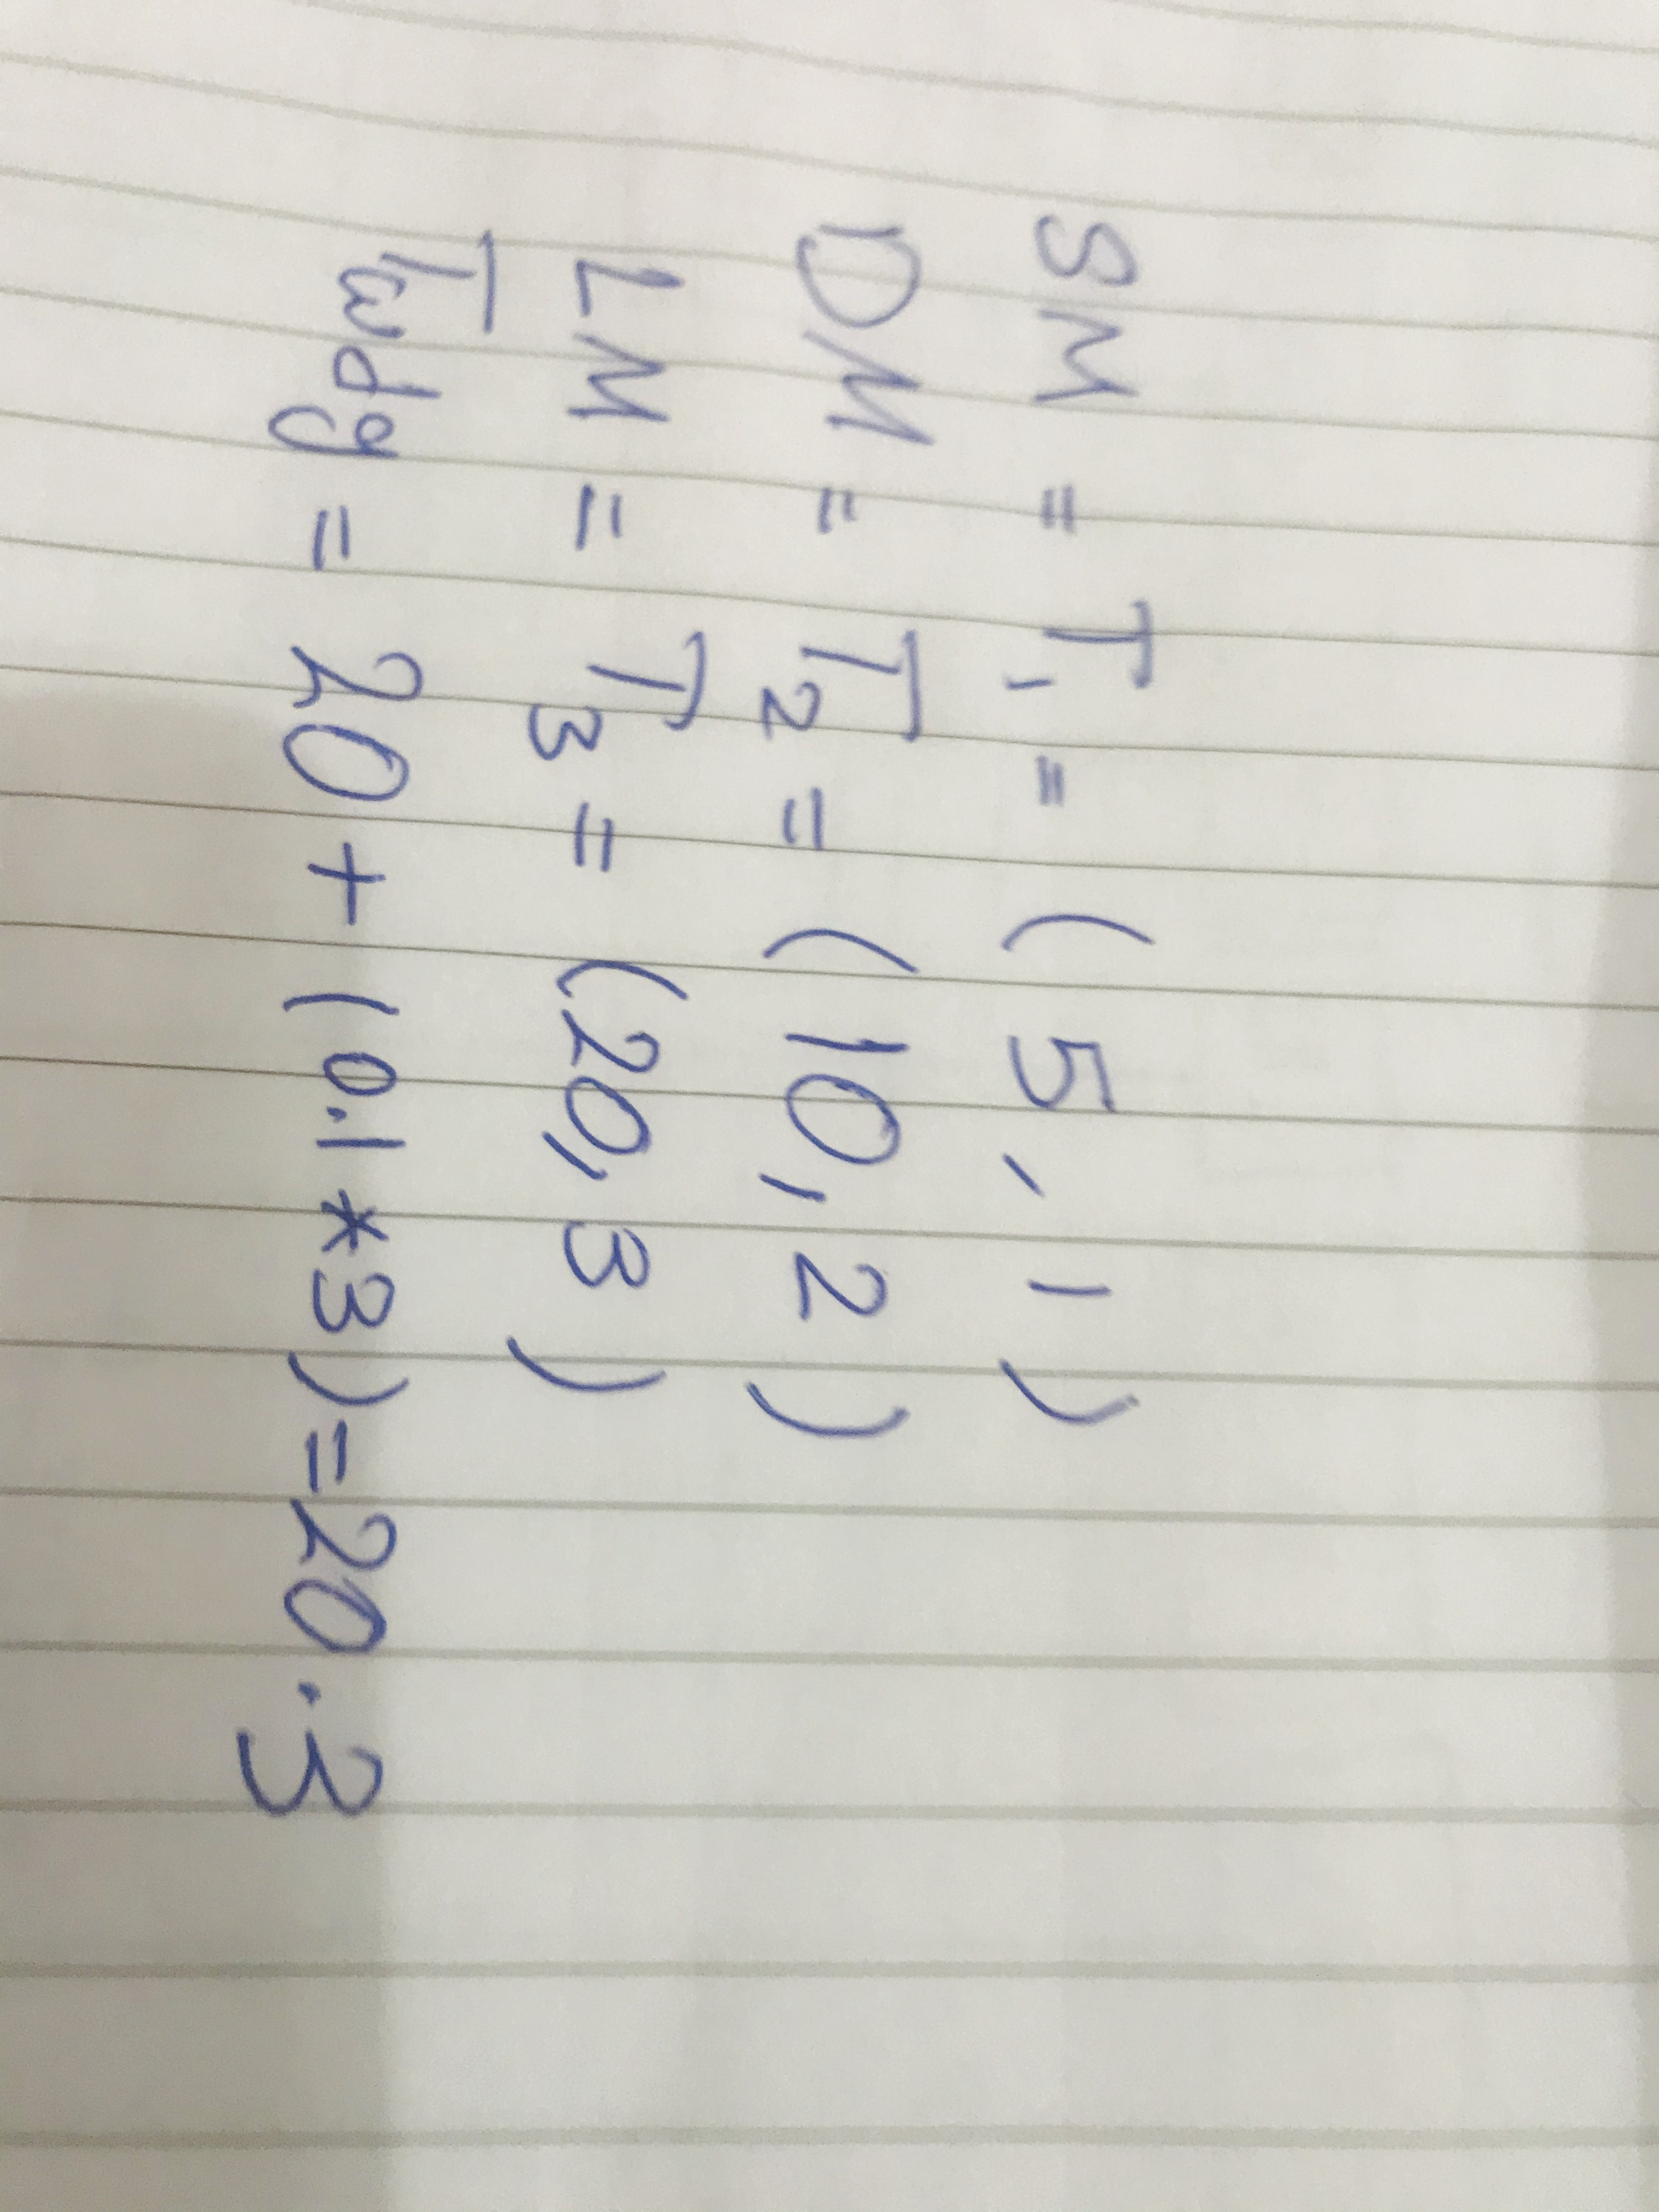 SM = T1 = (5, 1)
DM = T2 = (10, 2)
LM = T3 = (20, 3)
Twdg = 20 + (0.1 * 3) = 20.3